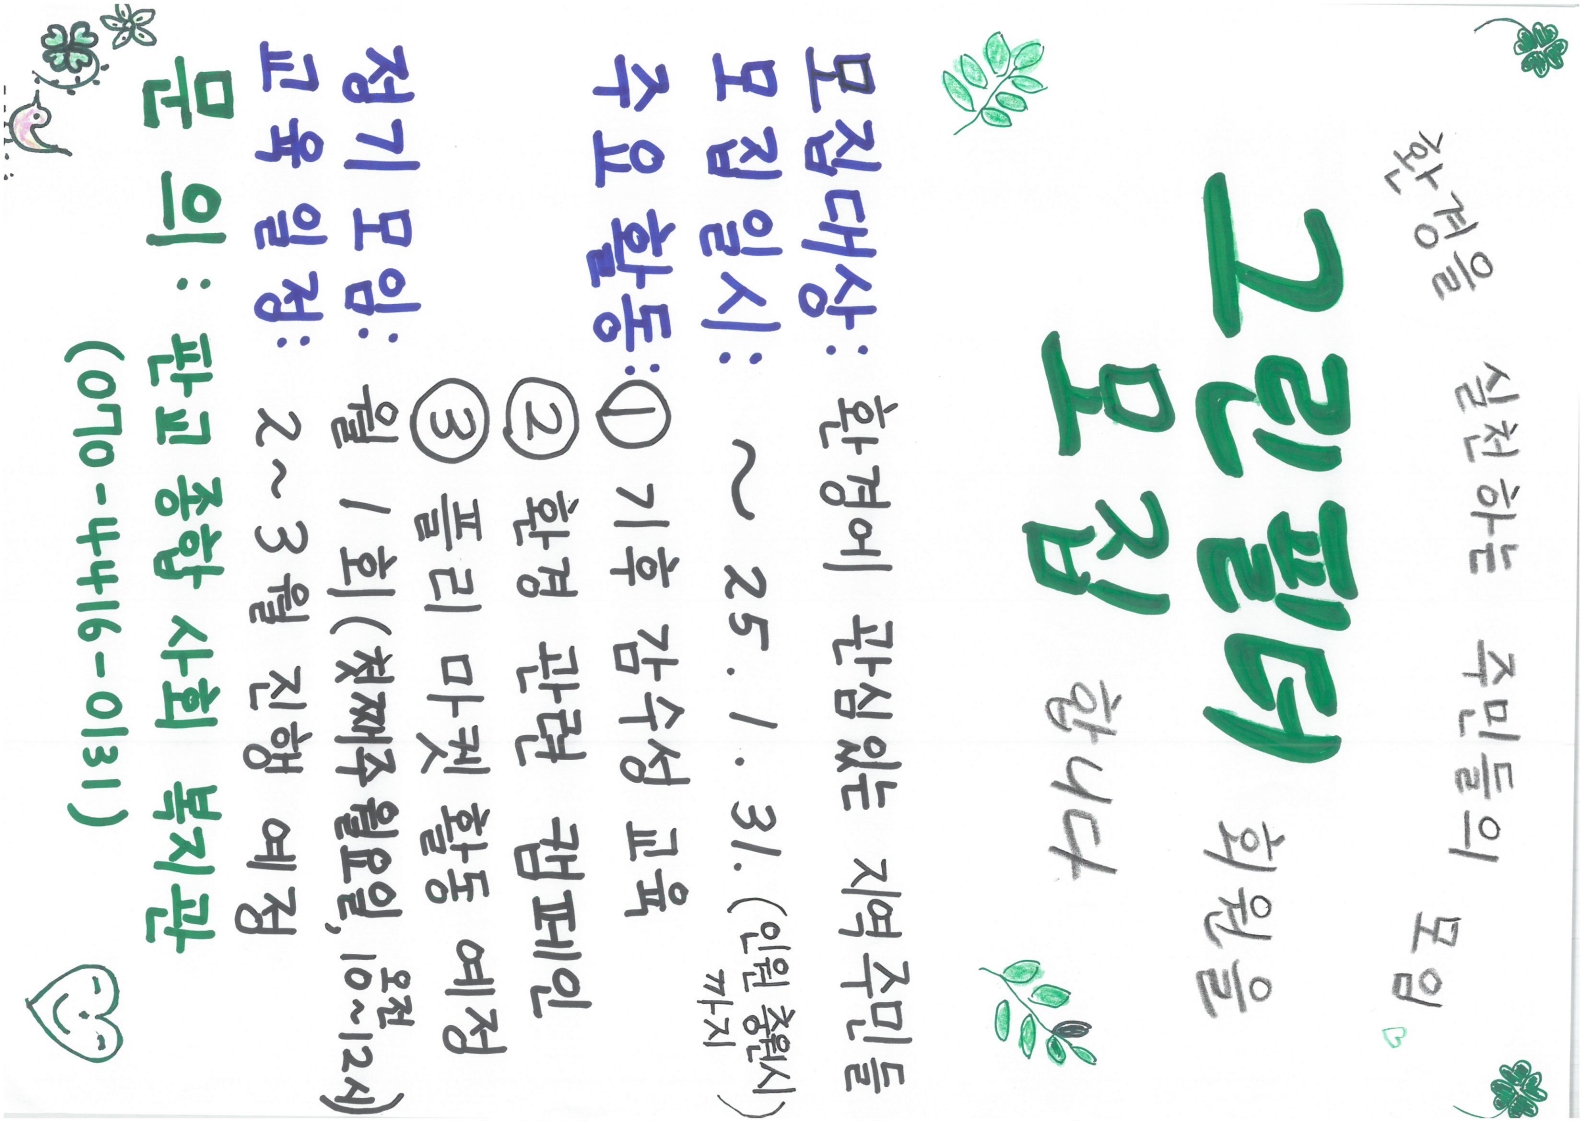 환경을 실천하는 주민들의 모임
그린필터 회원을
모집 합니다
모집대상: 환경에 관심있는 지역주민들
모집일시: ~ 25. 1. 31. (인원 충원시까지)
주요활동: ① 기후 감수성 교육
② 환경 관련 캠페인
③ 플리마켓 활동 예정
정기모임: 월 1회(첫째주 월요일, 오전 10~12시)
교육일정: 2~3월 진행 예정
문의: 판교종합사회복지관
(070-4416-0131)